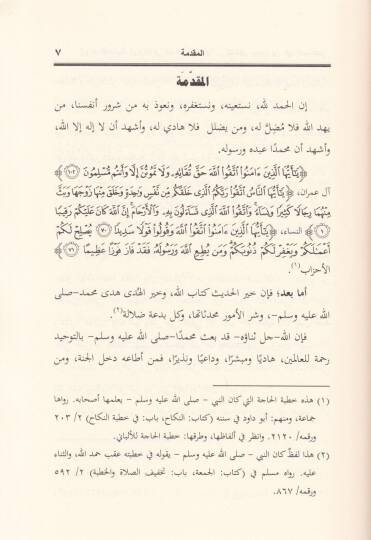 المقدمة ٧
المقدّمَة
إن الحمد لله، نستعينه، ونستغفره، ونعوذ به من شرور أنفسنا، من
يهد الله فلا مُضِلَّ له، ومن يضلل فلا هادي له، وأشهد أن لا إله إلا الله،
وأشهد أن محمدًا عبده ورسوله.
﴿يَٰٓأَيُّهَا ٱلَّذِينَ ءَامَنُوا۟ ٱتَّقُوا۟ ٱللَّهَ حَقَّ تُقَاتِهِۦ وَلَا تَمُوتُنَّ إِلَّا وَأَنتُم مُّسْلِمُونَ ﴿١٠٢﴾﴾
آل عمران، ﴿يَٰٓأَيُّهَا ٱلنَّاسُ ٱتَّقُوا۟ رَبَّكُمُ ٱلَّذِى خَلَقَكُم مِّن نَّفْسٍ وَٰحِدَةٍ وَخَلَقَ مِنْهَا زَوْجَهَا وَبَثَّ
مِنْهُمَا رِجَالًا كَثِيرًا وَنِسَآءً ۚ وَٱتَّقُوا۟ ٱللَّهَ ٱلَّذِى تَسَآءَلُونَ بِهِۦ وَٱلْأَرْحَامَ ۚ إِنَّ ٱللَّهَ كَانَ عَلَيْكُمْ رَقِيبًا
﴿١﴾﴾ النساء، ﴿يَٰٓأَيُّهَا ٱلَّذِينَ ءَامَنُوا۟ ٱتَّقُوا۟ ٱللَّهَ وَقُولُوا۟ قَوْلًا سَدِيدًا ﴿٧٠﴾ يُصْلِحْ لَكُمْ
أَعْمَٰلَكُمْ وَيَغْفِرْ لَكُمْ ذُنُوبَكُمْ ۗ وَمَن يُطِعِ ٱللَّهَ وَرَسُولَهُۥ فَقَدْ فَازَ فَوْزًا عَظِيمًا ﴿٧١﴾﴾
الأحزاب(١).
أما بعد؛ فإن خير الحديث كتاب الله، وخير الهُدى هدى محمد–صلى
الله عليه وسلم–، وشر الأمور محدثاتها، وكل بدعة ضلالة(٢).
فإن الله–جل ثناؤه– قد بعث محمدًا–صلى الله عليه وسلم– بالتوحيد
رحمة للعالمين، هاديًا ومبشرًا، وداعيًا ونذيرًا، فمن أطاعه دخل الجنة، ومن
(١) هذه خطبة الحاجة التي كان النبي – صلى الله عليه وسلم – يعلمها أصحابه. رواها
جماعة، ومنهم: أبو داود في سننه (كتاب: النكاح، باب: في خطبة النكاح) ٢/ ٢٠٣
ورقمه/ ٢١٢٠. وانظر في ألفاظها، وطرقها: خطبة الحاجة للألباني.
(٢) هذا لفظٌ كان النبي – صلى الله عليه وسلم – يقوله في خطبته عقب حمد الله، والثناء
عليه. رواه مسلم في (كتاب: الجمعة، باب: تخفيف الصلاة والخطبة) ٢/ ٥٩٢
ورقمه/ ٨٦٧.